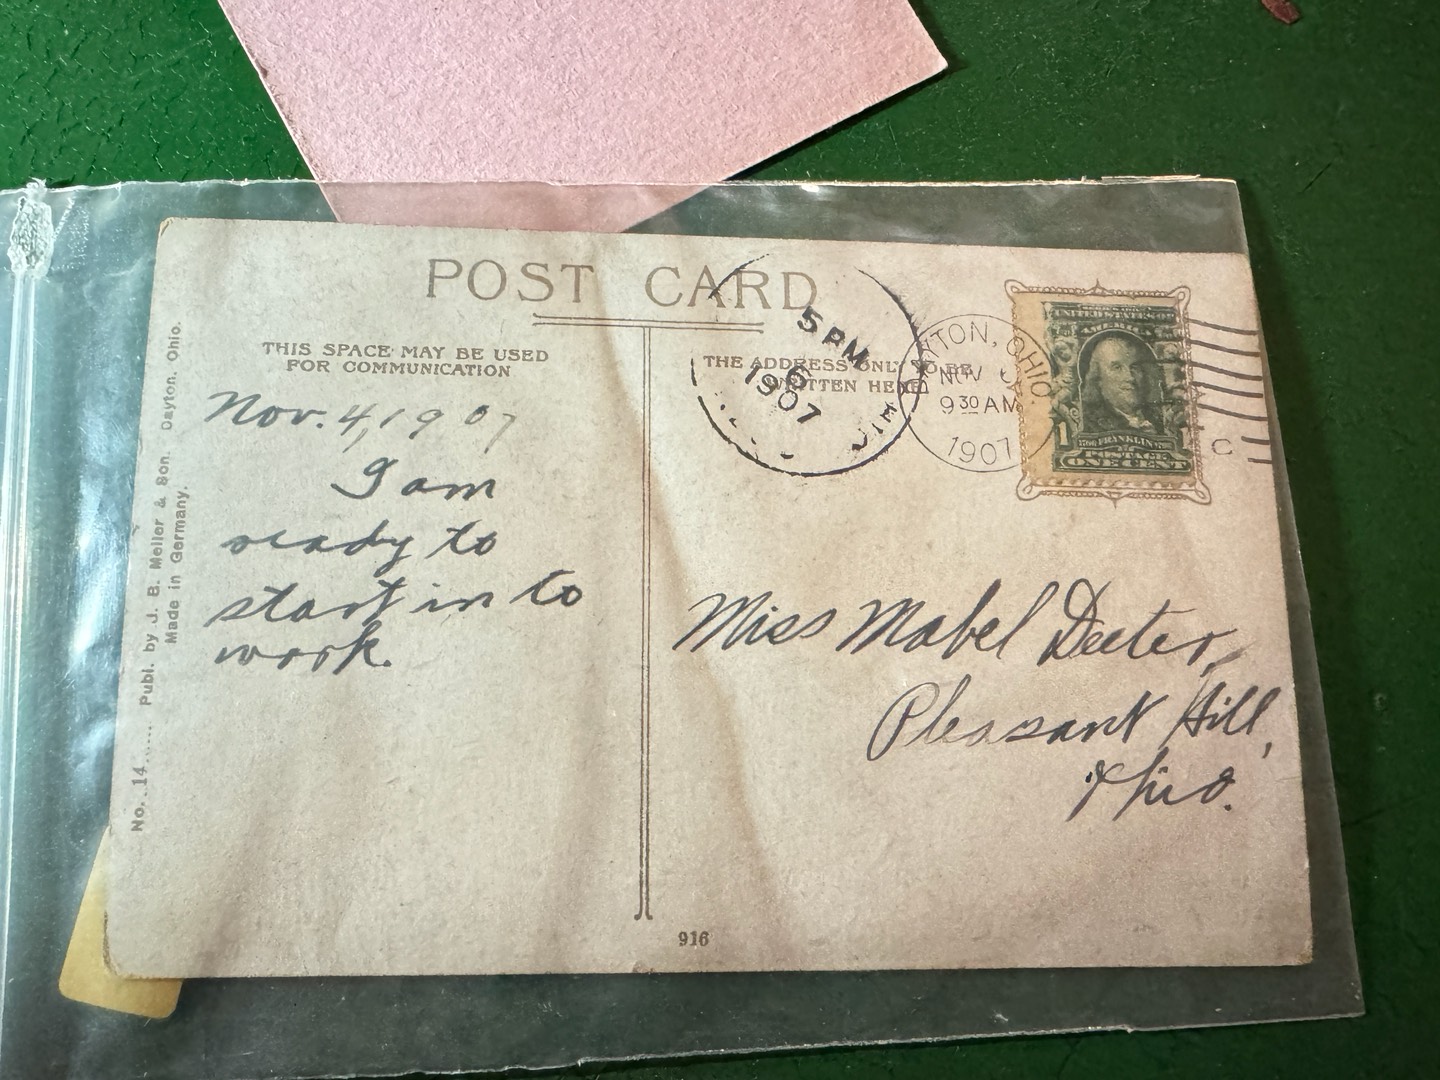 POST CARD
THIS SPACE MAY BE USED
FOR COMMUNICATION
THE ADDRESS ONLY TO BE
WRITTEN HERE
5 PM
6
1907
OHIO
DAYTON, OHIO
NOV 6
9 30 AM
1907
C
UNITED STATES OF
AMERICA
FRANKLIN
1 1
POSTAGE
ONE CENT
Nov. 4, 1907
I am
ready to
start in to
work.
Miss Mabel Deeter,
Pleasant Hill,
Ohio.
No. 14 Publ. by J. B. Meller & Son. Dayton, Ohio.
Made in Germany.
916